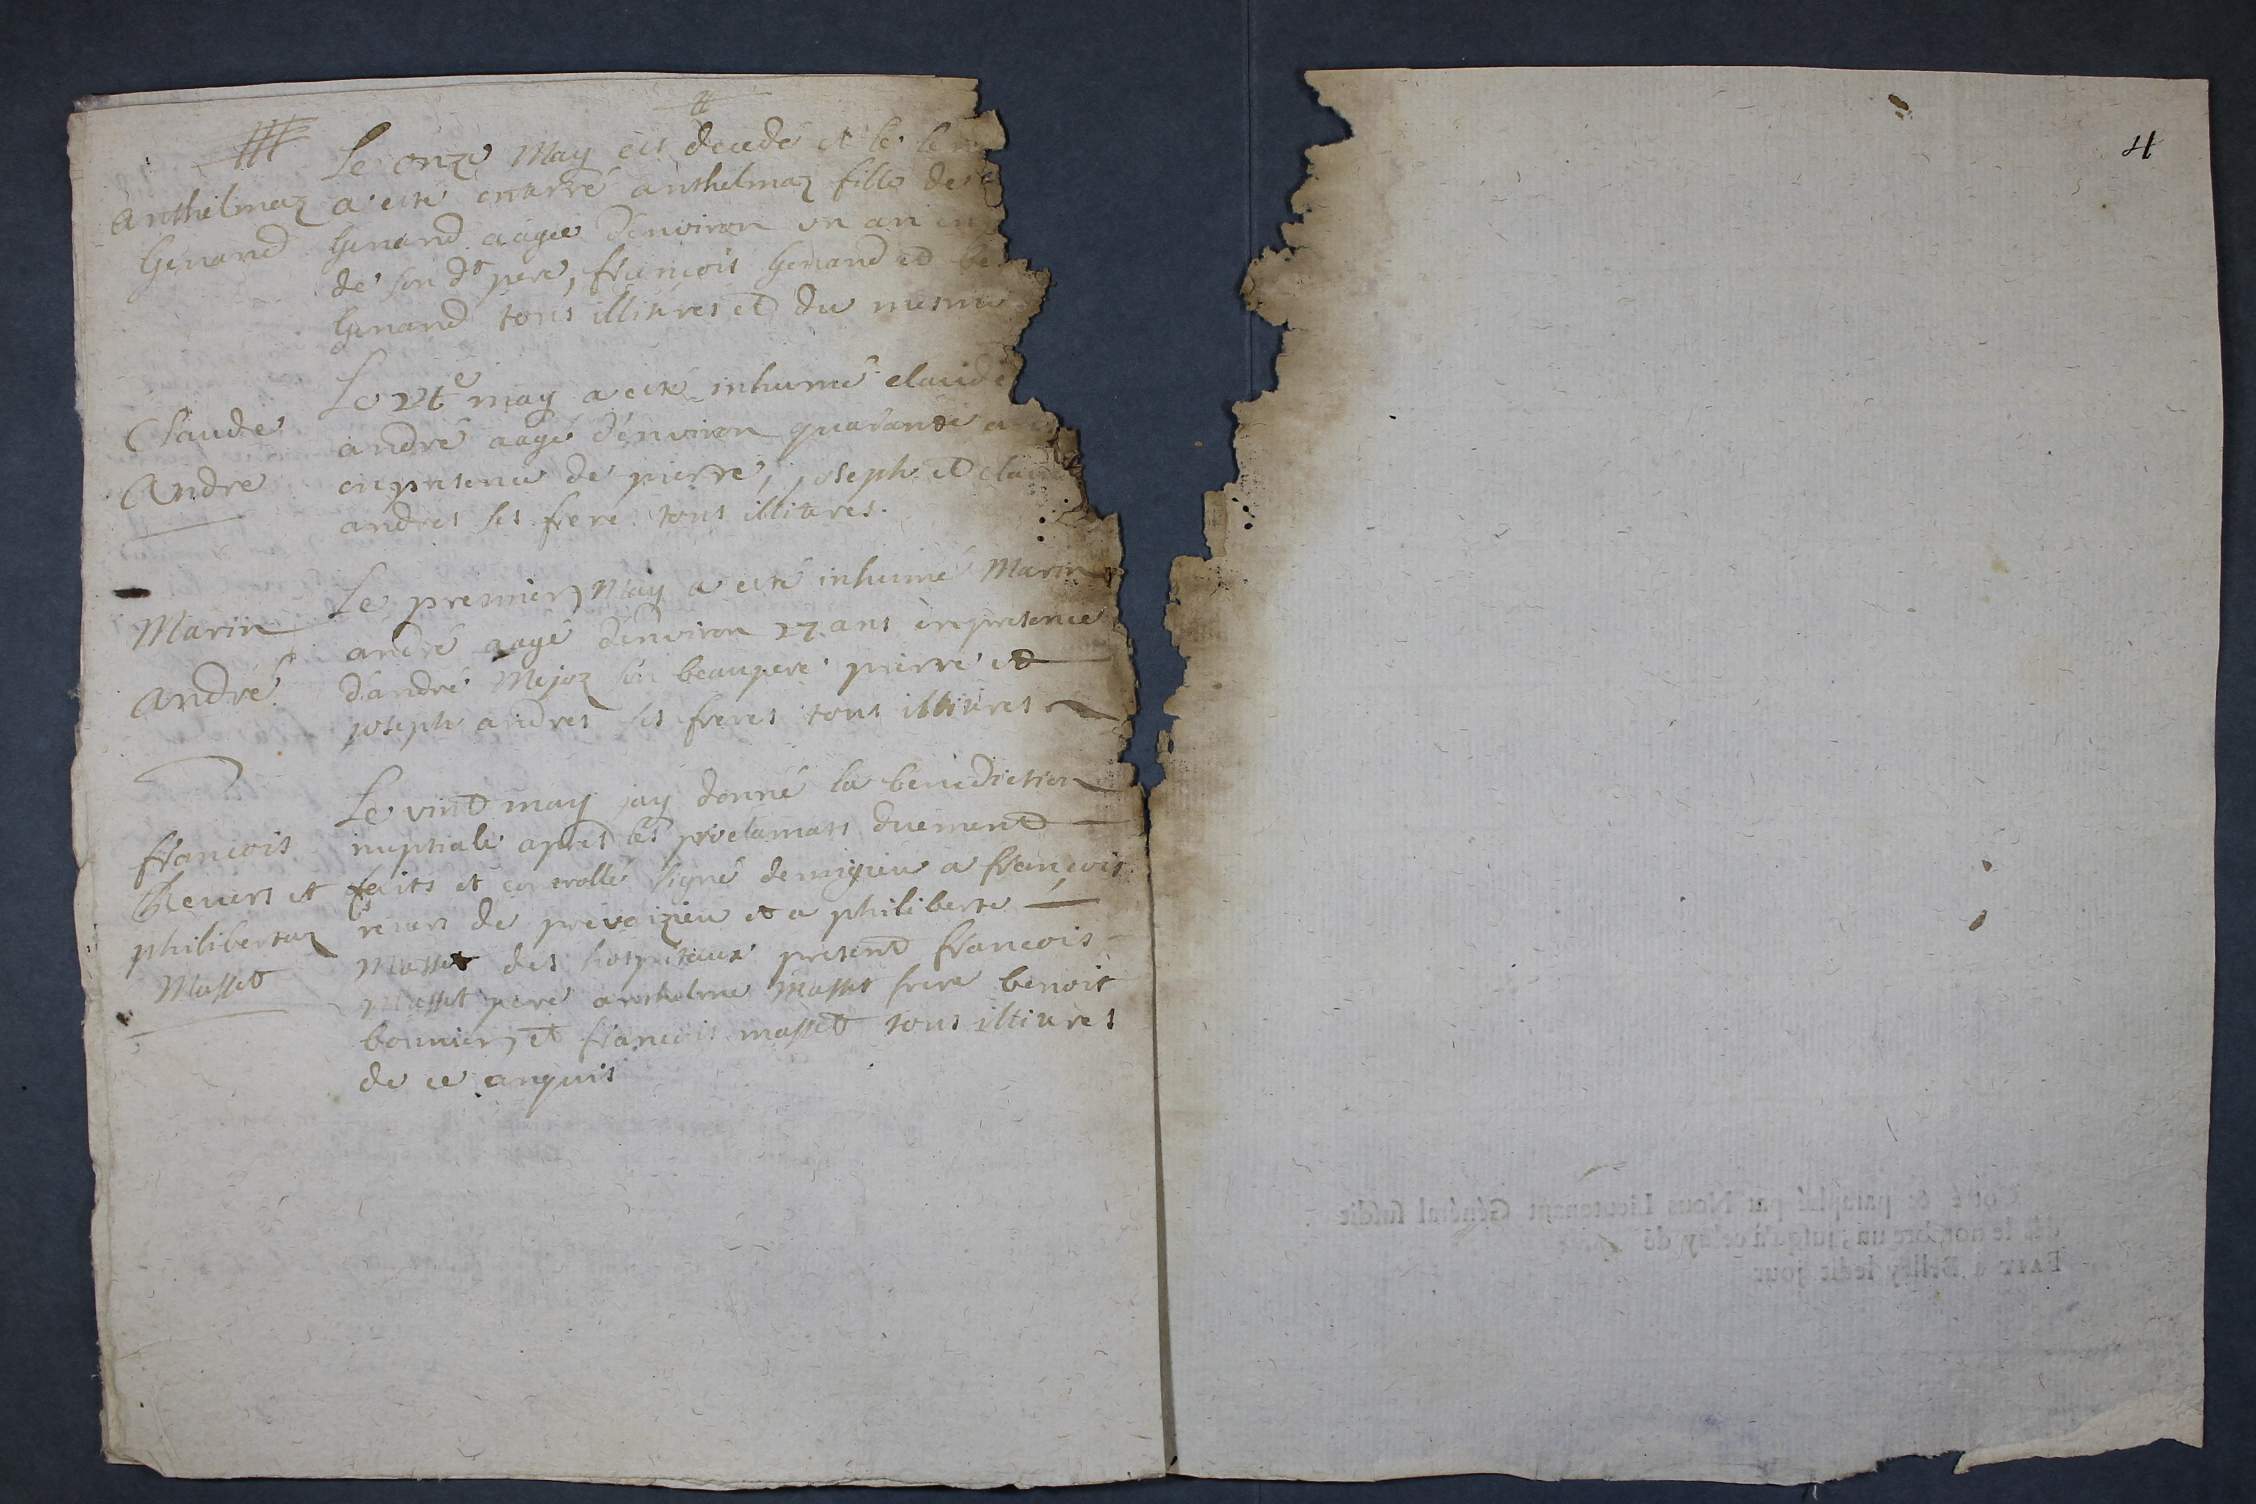 Anthelmaz
Genand
Le onze May est decedé et le le
a esté enterré anthelmaz fille de
Genand aagée d'environ un an en
de son dt pere, françois Genand et be
Genand tous illitéres et du mesme
Claude
André
Le may a esté inhumé claude
andré aagé d'environ quarante ans
en presence de pierre, joseph et claude
andres ses frere tous illitéres.
Marin
André
Le premier May a esté inhumé Marin
andré aagé d'environ 27 ans en presence
d'andré Mejoz son beaupere pierre et
joseph andres ses freres tous illitéres
françois
et
philibertaz
Masset
Le vint may jay donné la benediction
nuptiale apres les proclamaons duement
faits et controllé signé demigieu a françois
de et a philiberte
Masset des hospitaux present françois
Masset pere anthelme Masset frere benoit
bonnier et françois masset tous illitéres
de ce enquis
4
Coté & paraphé par Nous Lieutenant Général susdit
dés le nombre un, jusqu'à celuy de
FAIT à Belley ledit jour